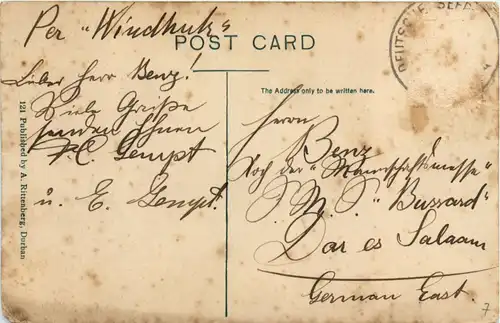 Per "Windhuk"
POST CARD
DEUTSCHE SEEP
The Address only to be written here.
Lieber Herr Benz!
Viele Grüße
senden Ihnen
Gempt
u. E. Gempt.
Herrn
Benz
Koch der "Mannschaftsmesse"
S. M. S. "Bussard"
Dar es Salaam
German East.
121 Published by A. Rittenberg, Durban
7